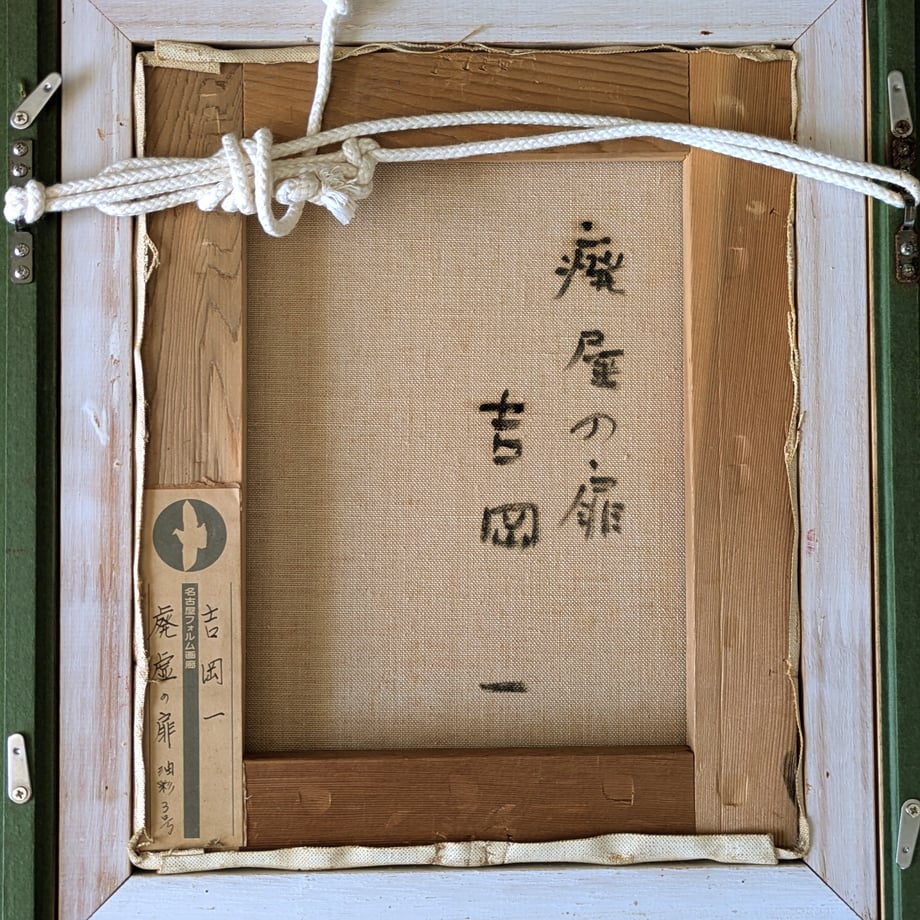 癈屋の扉
吉岡一
吉岡一
名古屋フォルム画廊
廃虚の扉 油彩3号